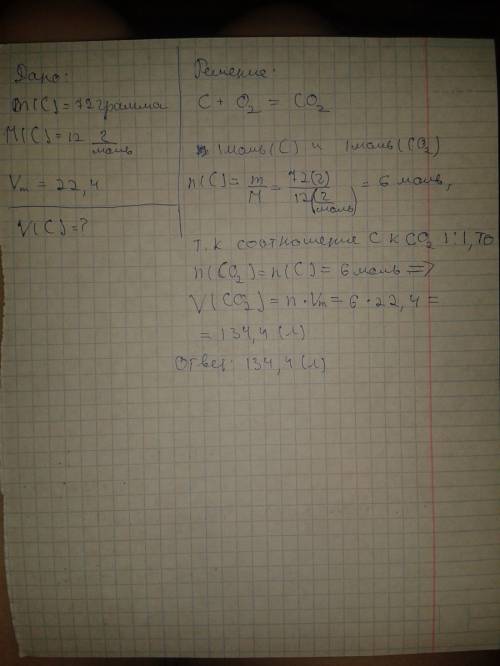 Дано:
m(C) = 72 грамма
M(C) = 12 г/моль
Vm = 22,4
V(C) = ?
Решение:
C + O2 = CO2
1 моль (C) и 1 моль (CO2)
n(C) = m/M = 72(г)/12(г/моль) = 6 моль,
т.к соотношение C к CO2 1:1, то
n(CO2) = n(C) = 6 моль =>
V(CO2) = n · Vm = 6 · 22,4 =
= 134,4 (л)
Ответ: 134,4 (л)